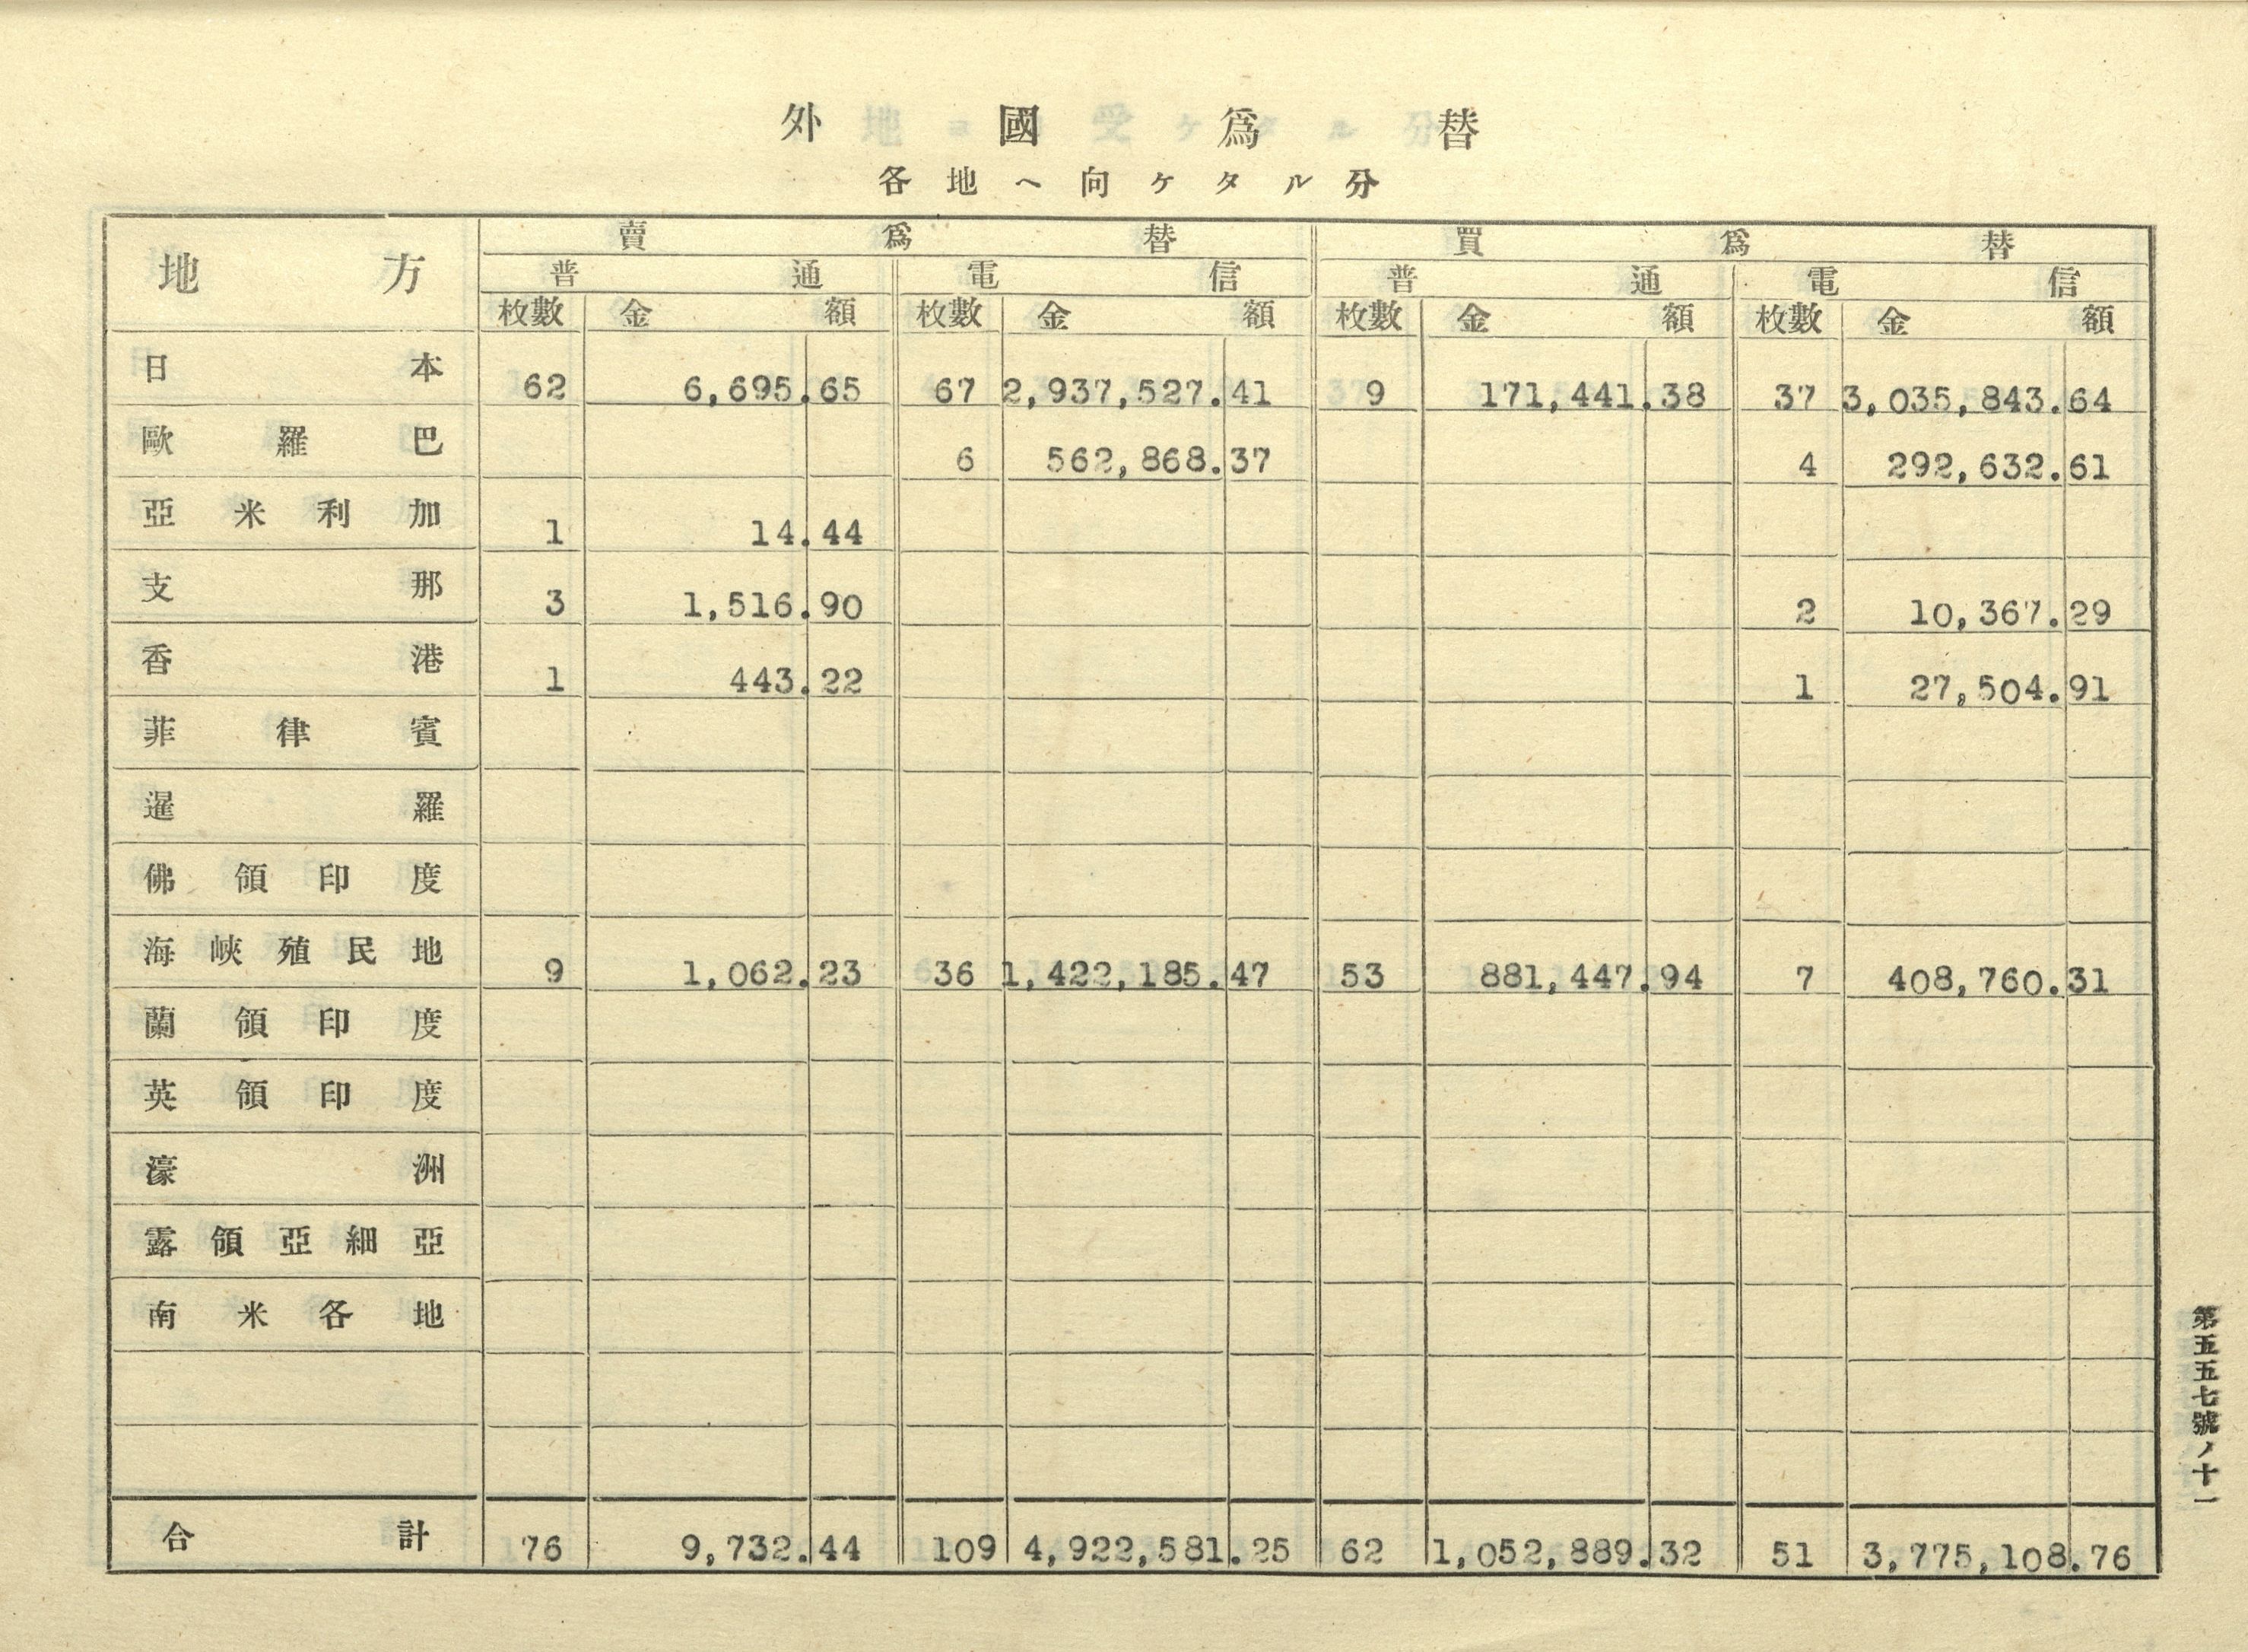 外國爲替
各地ヘ向ケタル分
地方 賣爲替 買爲替
普通 電信 普通 電信
枚數 金額 枚數 金額 枚數 金額 枚數 金額
日本 62 6,695.65 67 2,937,527.41 9 171,441.38 37 3,035,843.64
歐羅巴 6 562,868.37 4 292,632.61
亞米利加 1 14.44
支那 3 1,516.90 2 10,367.29
香港 1 443.22 1 27,504.91
菲律賓
暹羅
佛領印度
海峽殖民地 9 1,062.23 36 1,422,185.47 53 881,447.94 7 408,760.31
蘭領印度
英領印度
濠洲
露領亞細亞
南米各地
合計 76 9,732.44 109 4,922,581.25 62 1,052,889.32 51 3,775,108.76
第五五七號ノ十一